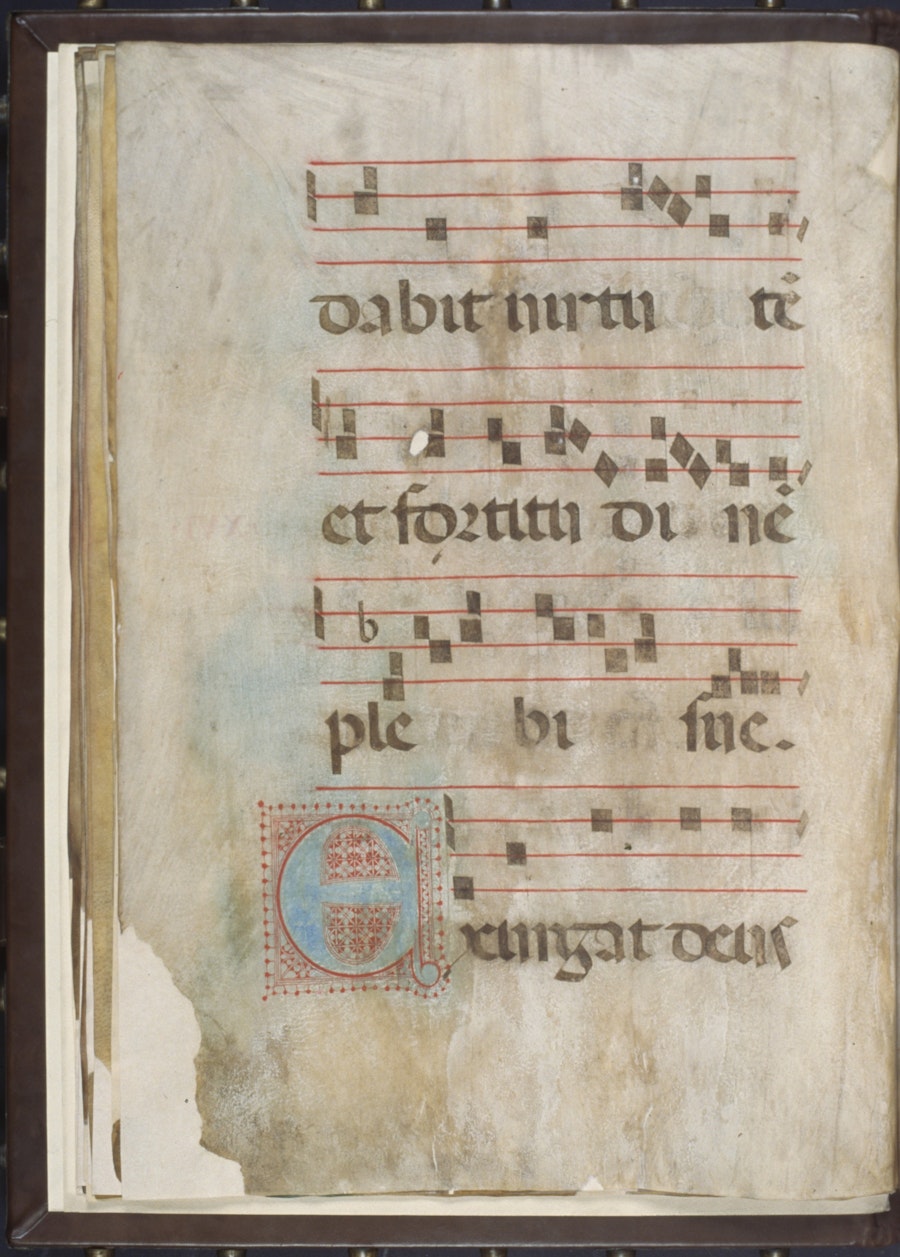 dabit uirtu tē
et fortitu di nē
ple bi sue.
Exurgat deus